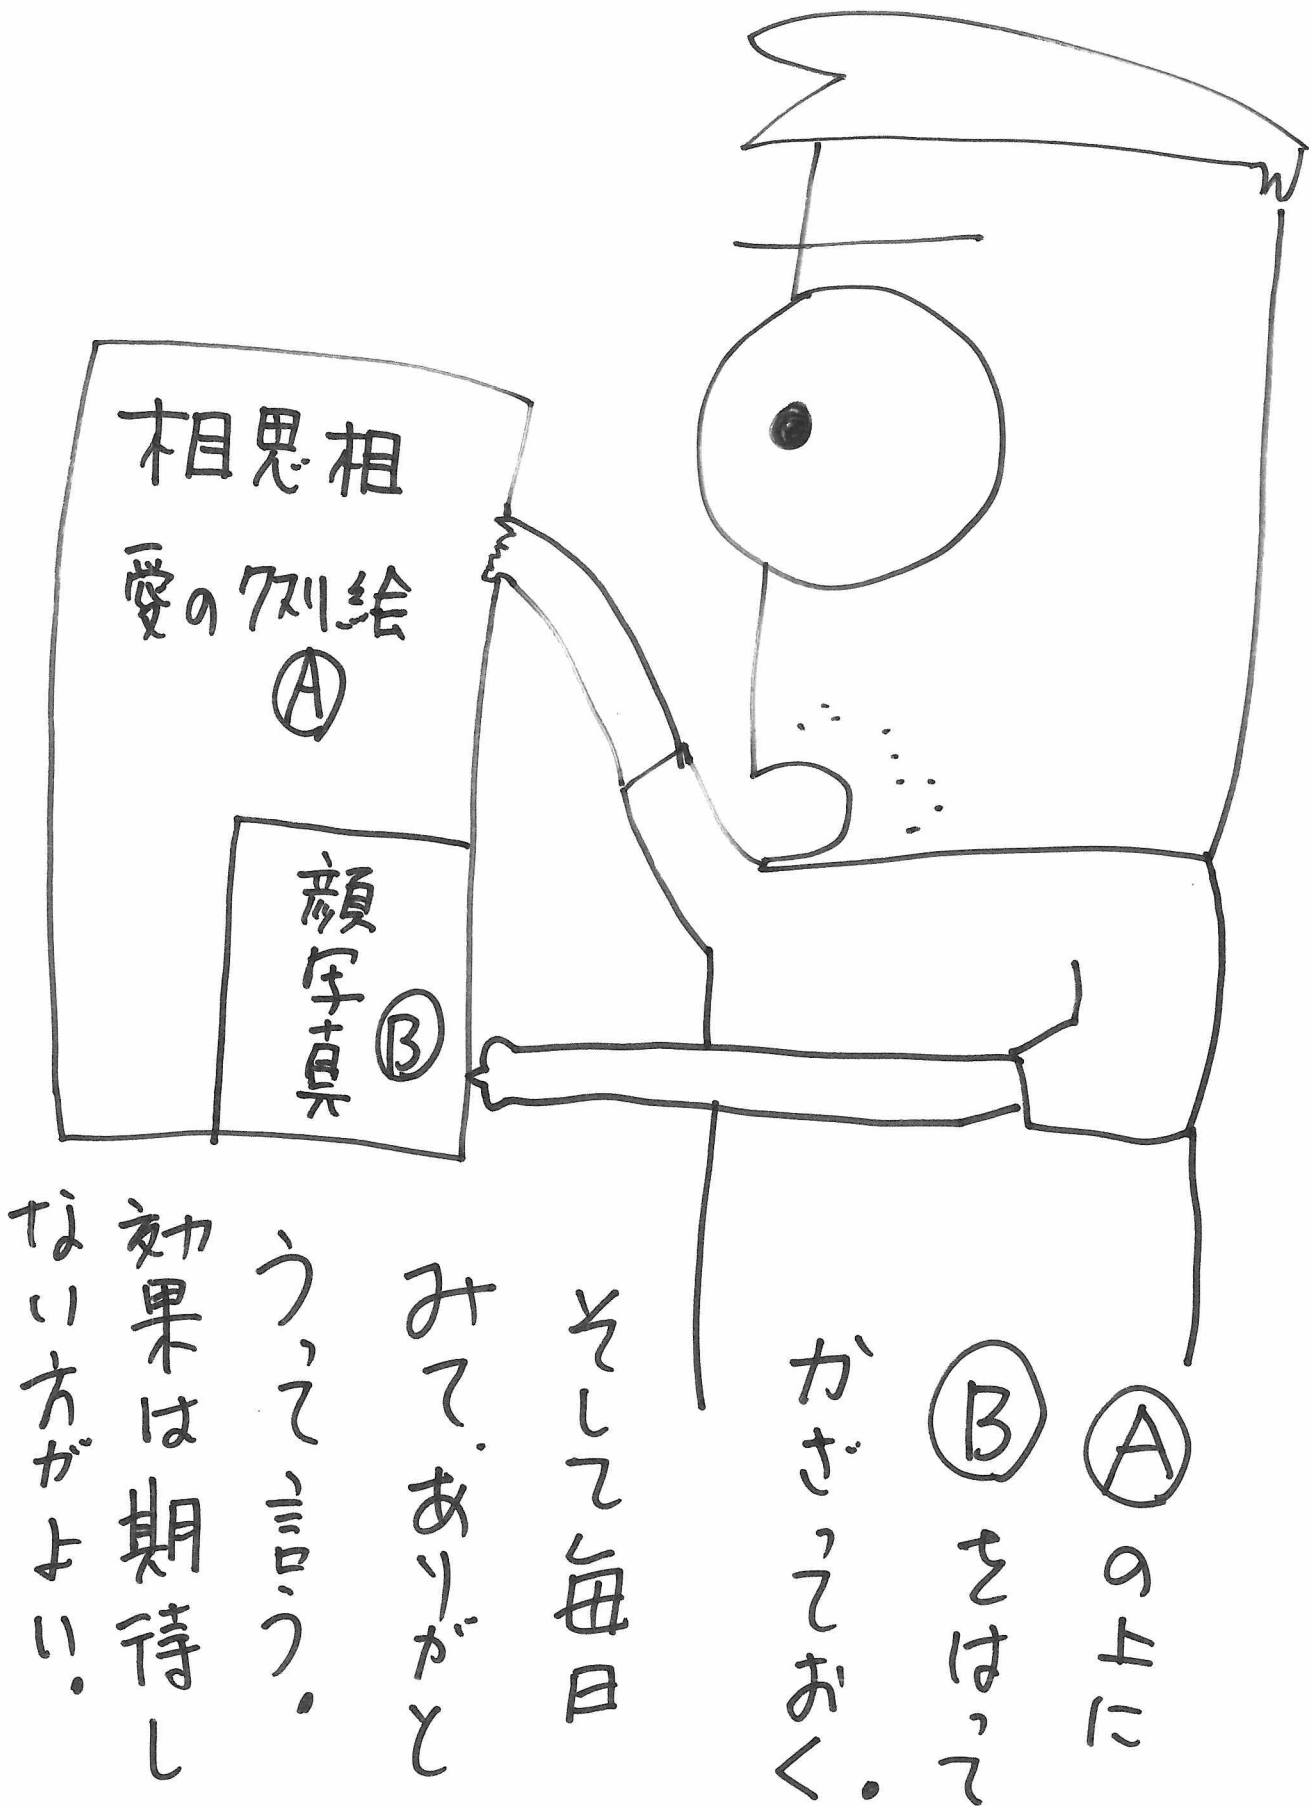 相思相
愛のクスリ絵
Ⓐ
顔写真
Ⓑ
Ⓐの上に
Ⓑをはって
かざっておく。
そして毎日
みて、ありがと
うって言う。
効果は期待し
ない方がよい。